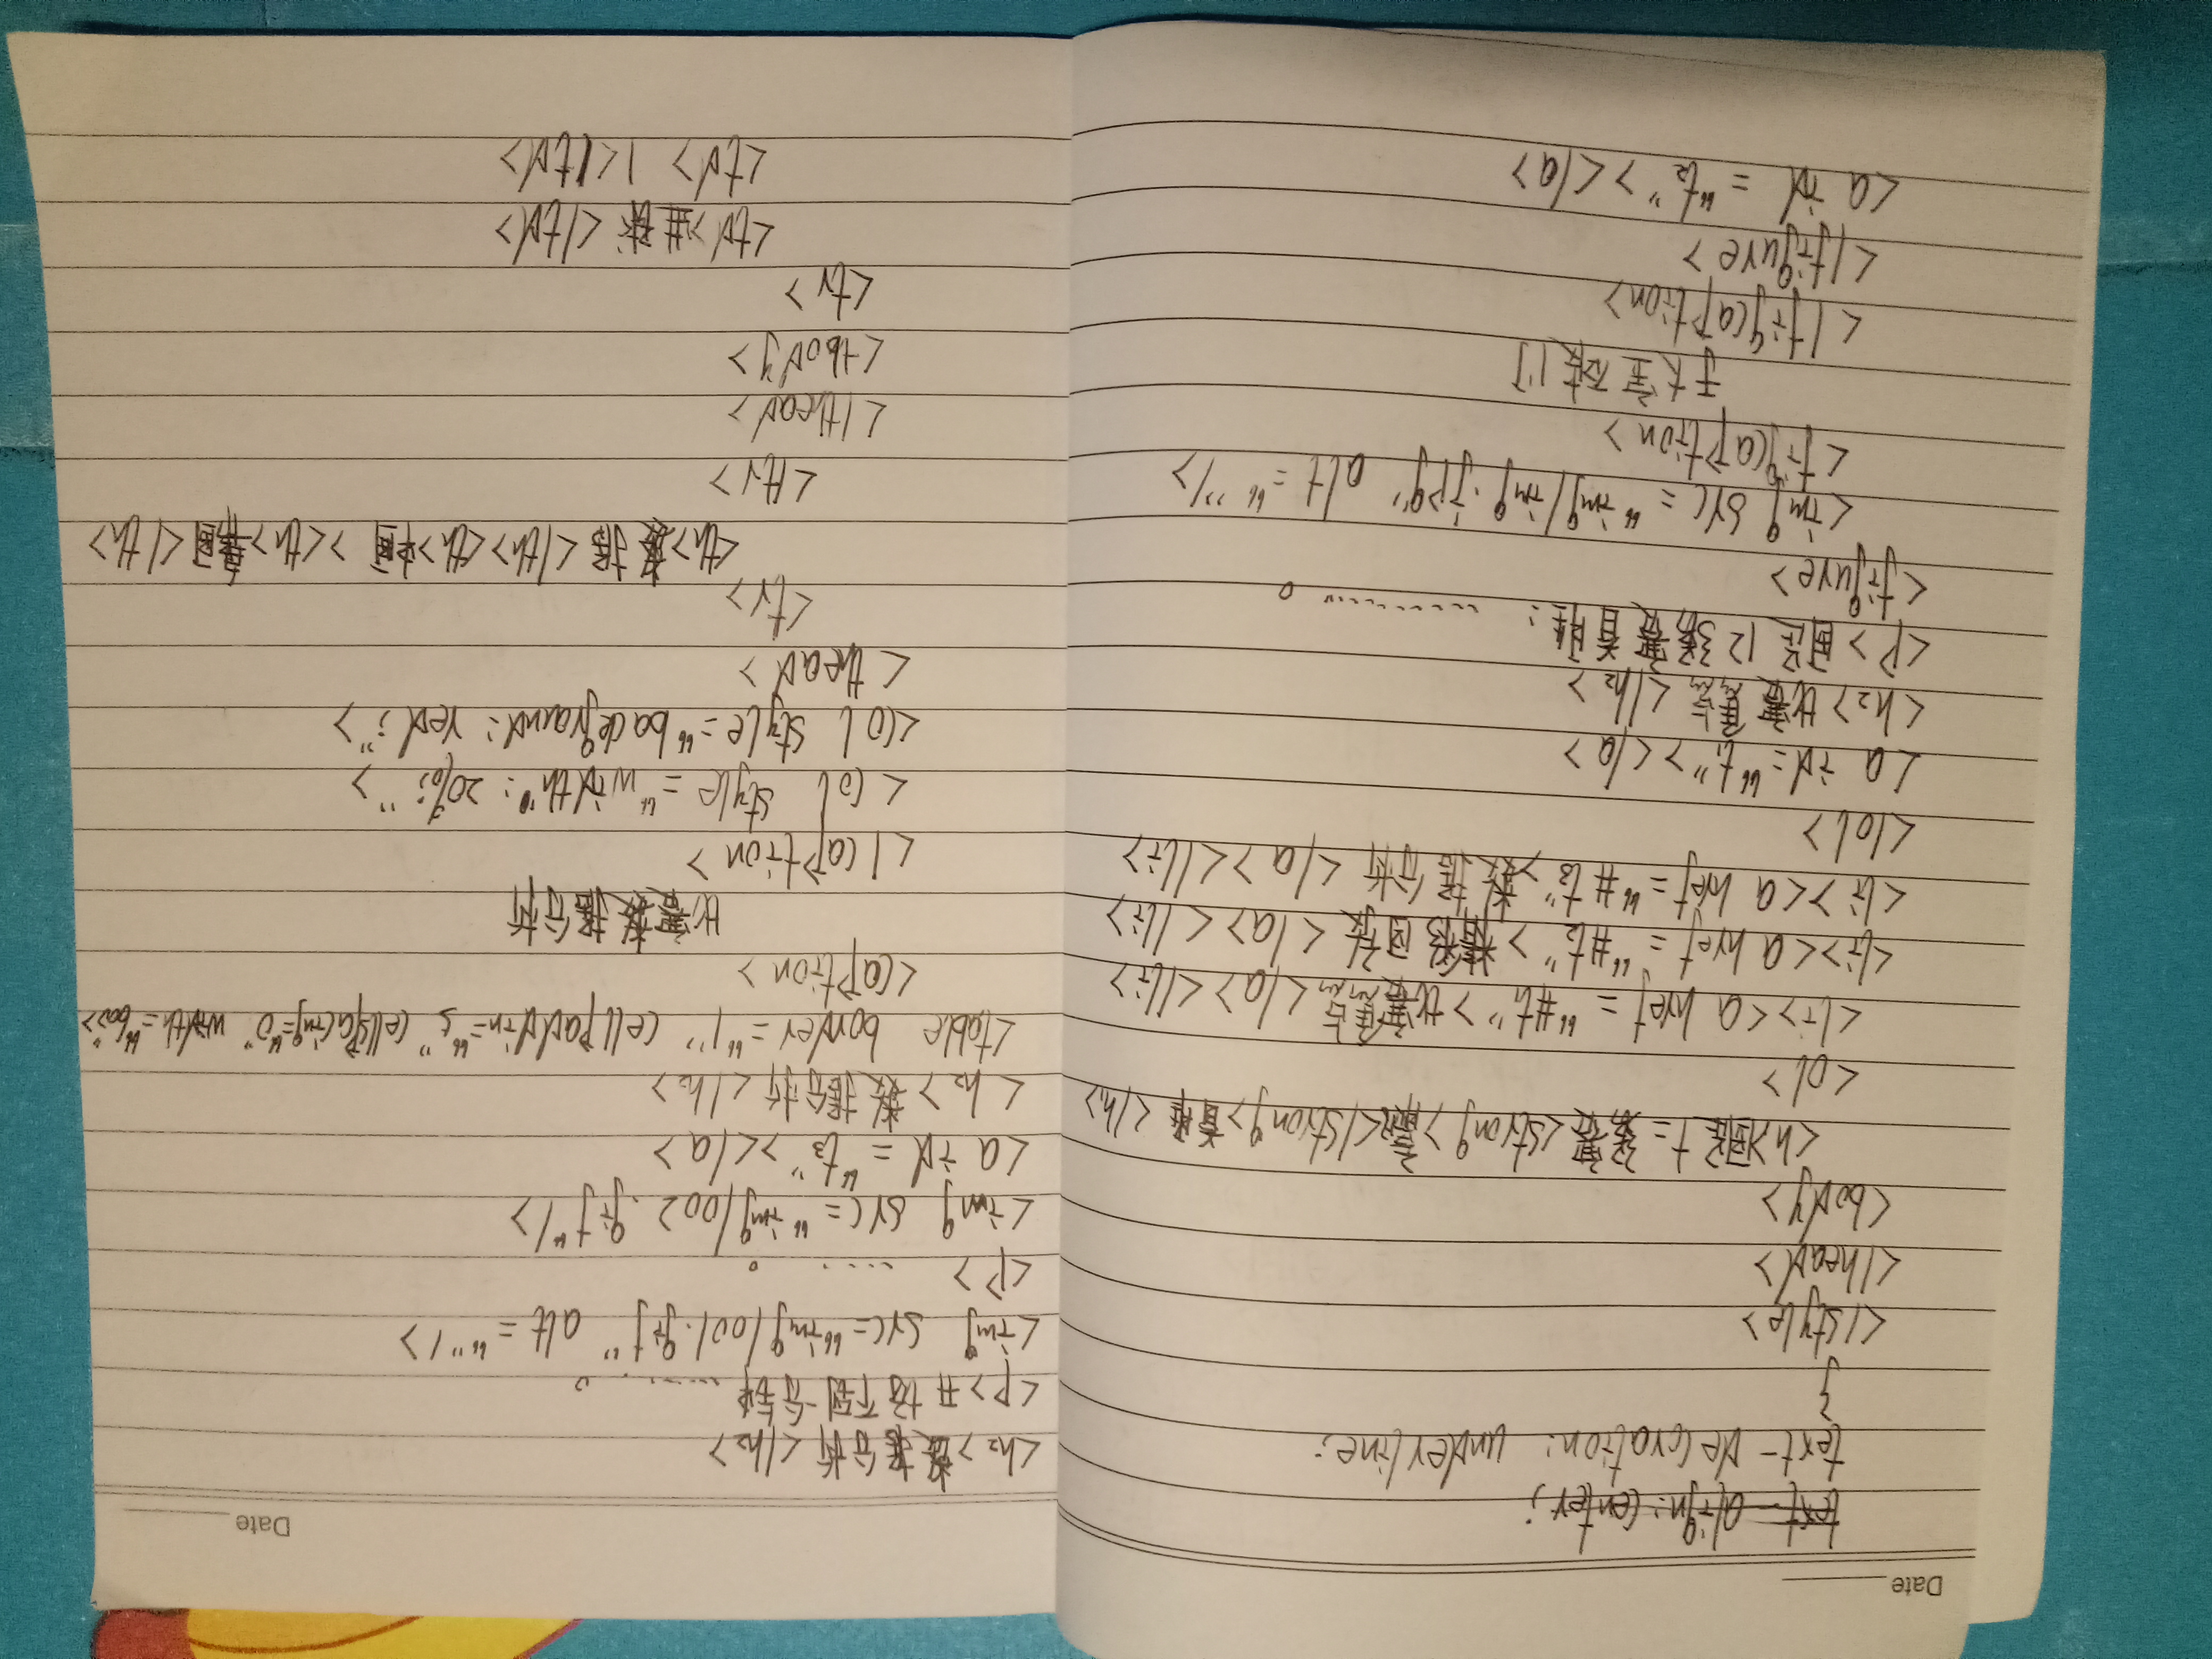 Date
text-align: center;
text-decoration: underline;
}
</style>
</head>
<body>
<h1>国足十二强赛<strong></strong>首胜</h1>
<ol>
<li><a href="#t1">比赛信息</a></li>
<li><a href="#t2">精彩回放</a></li>
<li><a href="#t3">数据分析</a></li>
</ol>
<a id="t1"></a>
<h2>比赛信息</h2>
<p>国足12强赛首胜: ……。
<figure>
<img src="img/img.jpg" alt=""/>
<figcaption>
于大宝破门
</figcaption>
</figure>
<a id="t2"></a>
Date
<h2>数据分析</h2>
<p>开场不到一分钟……。
<img src="img/001.gif" alt=""/>
<p> ……。
<img src="img/002.gif"/>
<a id="t3"></a>
<h2>数据分析</h2>
<table border="1" cellpaddin="5" cellspacing="0" width="600">
<caption>
比赛数据分析
</caption>
<col style="width: 20%;">
<col style="background: red;">
<thead>
<tr>
<th>数据</th><th>中国><th>韩国</th>
</tr>
</thead>
<tbody>
<tr>
<td>进球</td>
<td>1</td>